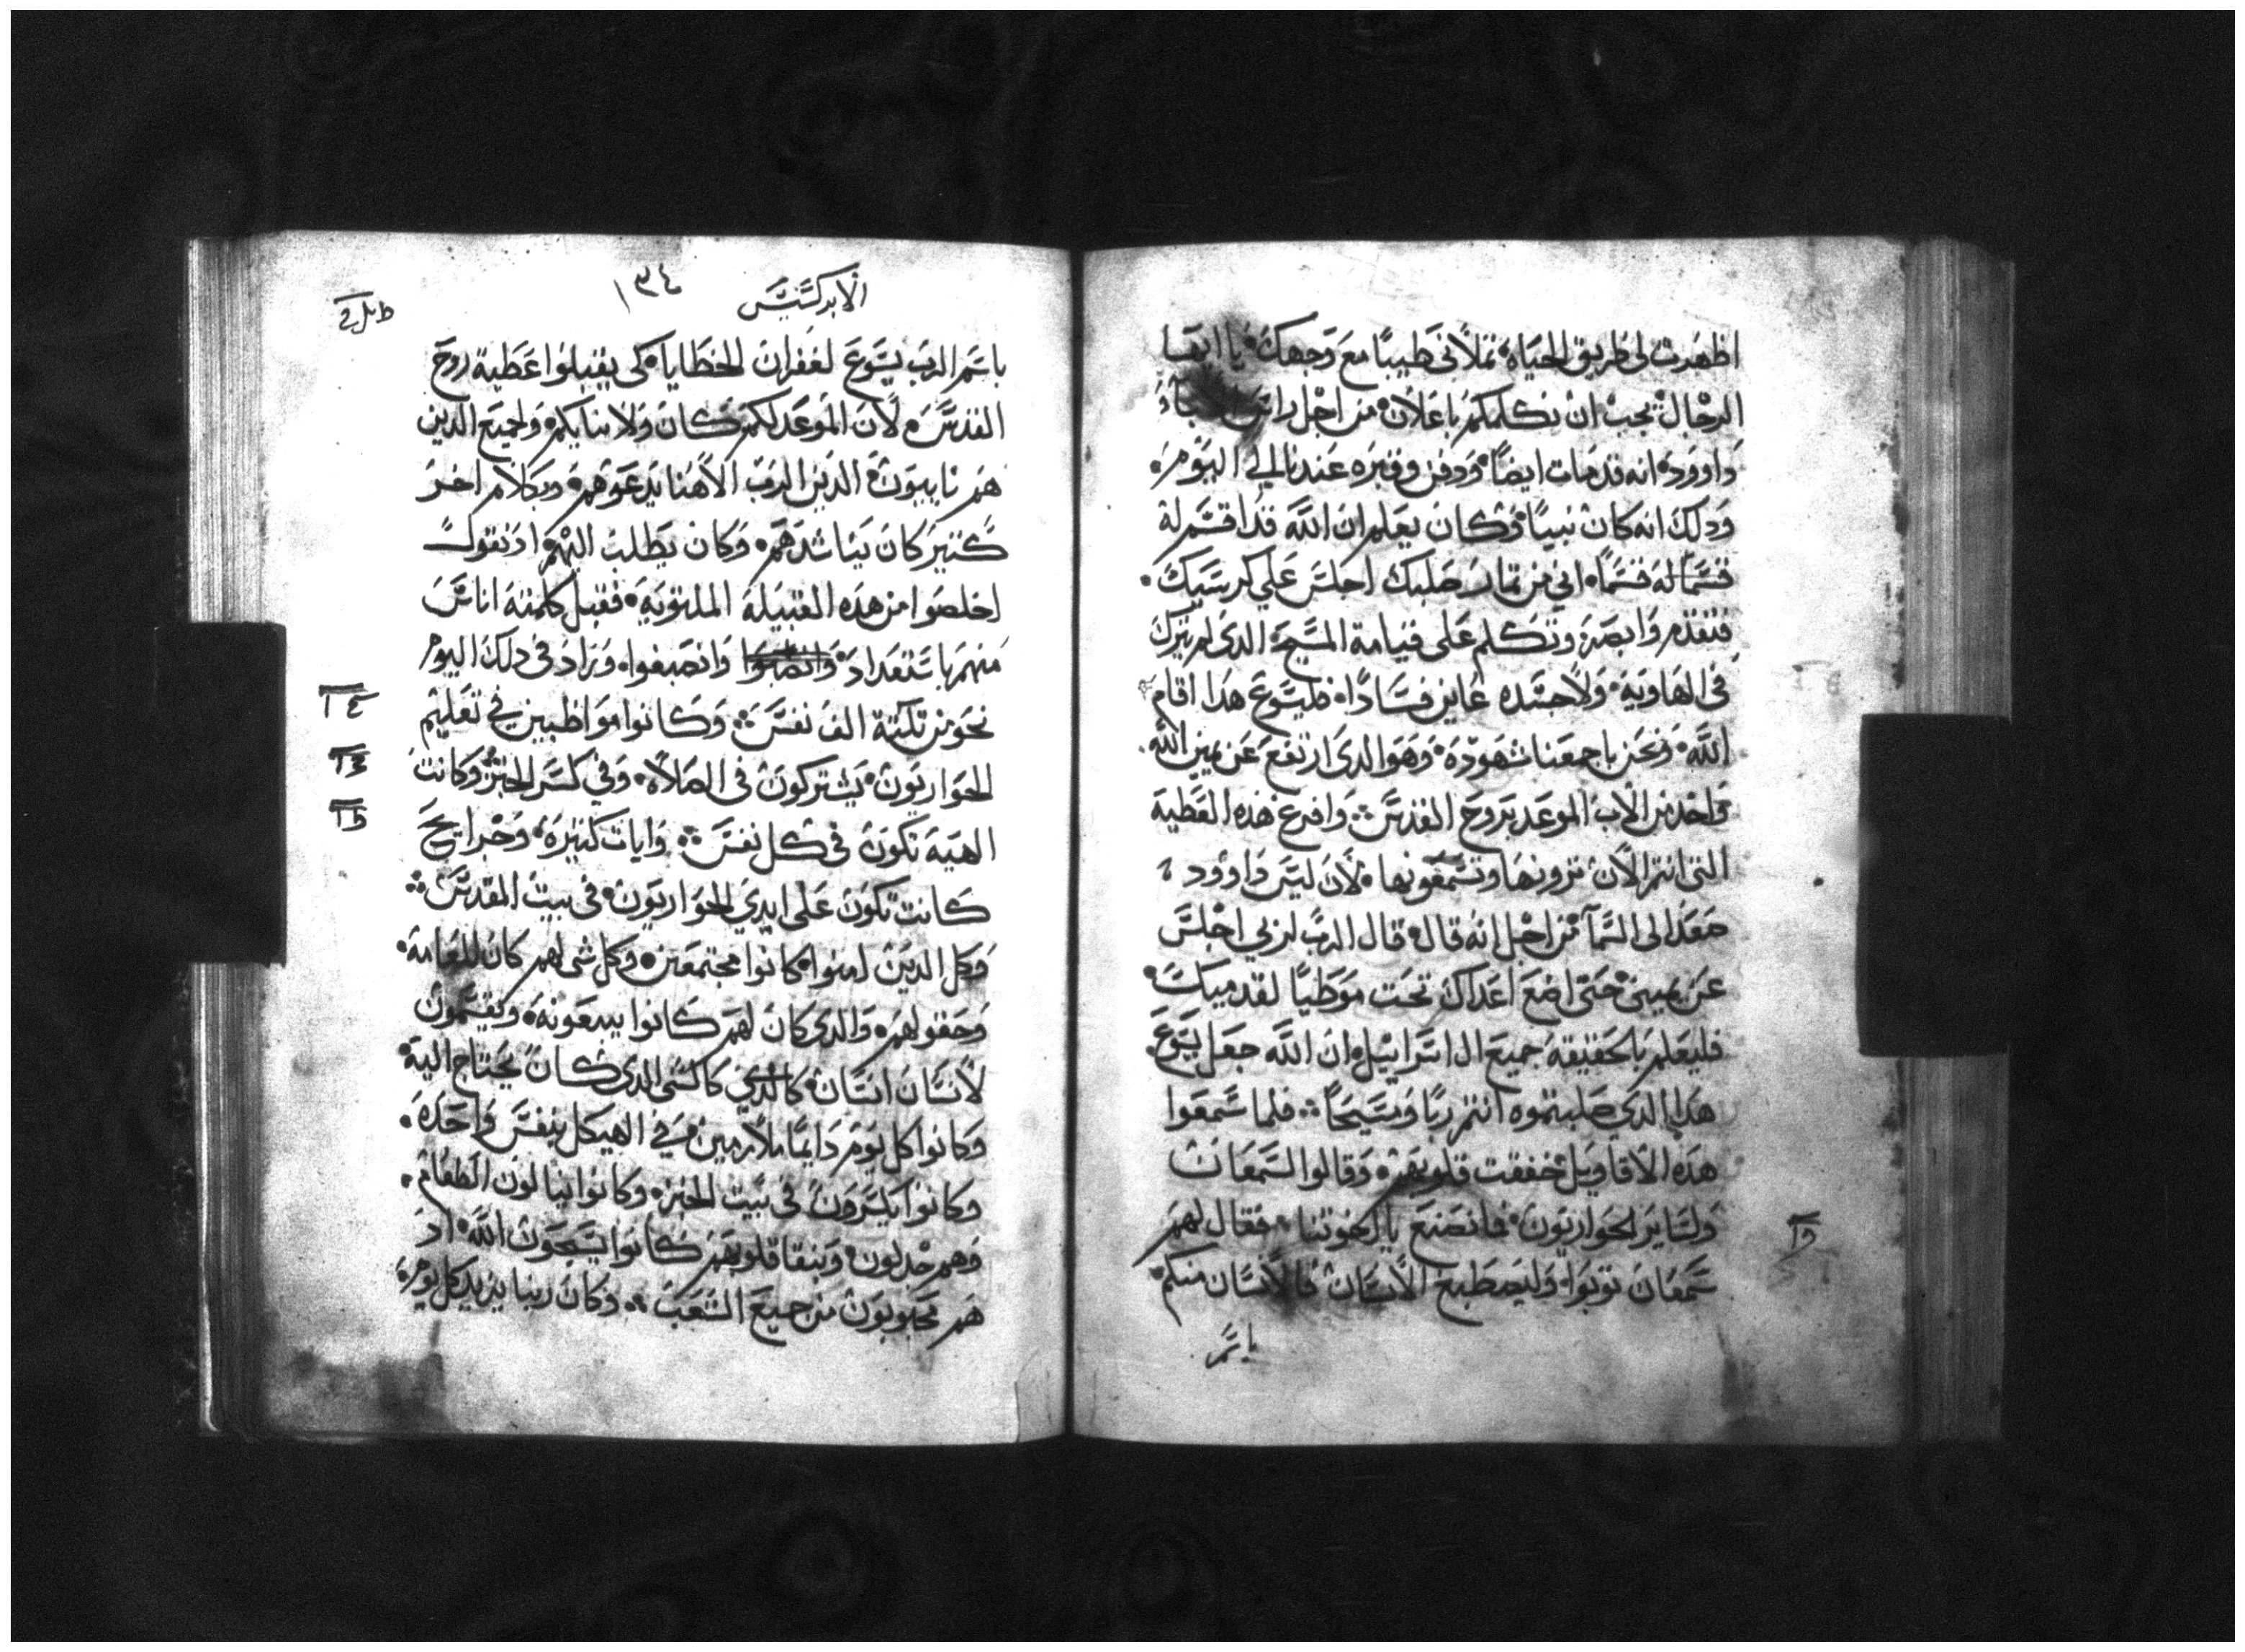 اظهرت لي طريق الحياة، تملأني طيبا مع وجهك، يا ايها
الرجال، يجب ان نكلمكم باعلان من اجل راس
داوود، انه قد مات ايضا، ودفن وقبره عندنا الي اليوم،
ودلك انه كان نبيا، وكان يعلم ان الله قد اقسم له
قسما له قسما، اني من تمار صلبك اجلس علي كرسيك،
فتقدم وابصر، وتكلم علي قيامة المسيح، الدي لم يترك
في الهاوية، ولا جسده عاين فسادا، فليسوع هدا اقام
الله، ونحن باجمعنا شهوده، وهو الدي ارتفع عن يمين الله
واخد من الاب الموعد بروح القدس ܀ وافرغ هده العطية
التي انتم الان ترونها وتسمعونها، لان ليس داوود
صعد الي السما من اجل انه قال، قال الرب لربي اجلس
عن يميني حتي اضع اعداك تحت موطيا لقدميك،
فليعلم بالحقيقة جميع ال اسراييل، ان الله جعل يسوع
هدا الدي صلبتموه انتم ربا ومسيحا ܀ فلما سمعوا
هده الاقاويل خفقت قلوبهم، وقالوا لسمعان
ولساير الحواريون، فما نصنع يا اخوتنا، فقال لهم
سمعان توبوا، وليصطبغ الانسان فالانسان منكم،
باسم
الابركسيس
١٣٤
باسم الرب يسوع لغفران الخطايا، كي يقبلوا عطية روح
القدس، لان الموعد لكم كان ولابنايكم، ولجميع الدين
هم ناييون، الدين الرب الاهنا يدعوهم، وبكلام اخر
كتير كان يناشدهم، وكان يطلب اليهم، اد يقول
اخلصوا من هده القبيلة الملتوية، فقبل كلمته اناس
منهم باستعداد، وانصبوا وانصبغوا، وزاد في دلك اليوم
نحو من تلتة الف نفس ܀ وكانوا مواظبين في تعليم
الحواريون، يشتركون في الصلاه، وفي كسر الخبز، وكانت
الهيبة تكون في كل نفس ܀ وايات كتيرة، وجرايح
كانت تكون علي ايدي الحواريون، في بيت المقدس ܀
وكل الدين امنوا، كانوا مجتمعين، وكل شي لهم كان للعامة،
وحقولهم، والدي كان لهم كانوا يبيعونه، ويقسمون
لانسان انسان، كالدي كالشي الدي كان يحتاج اليه،
وكانوا كل يوم دايما ملازمين في الهيكل بنفس واحده،
وكانوا يكسرون في بيت الخبز، وكانوا ينالون الطعام،
وهم جدلون، وبنقا قلوبهم كانوا يسبحون الله، اد
هم محبوبون من جميع الشعب ܀ وكان ربنا يزيد كل يوم،